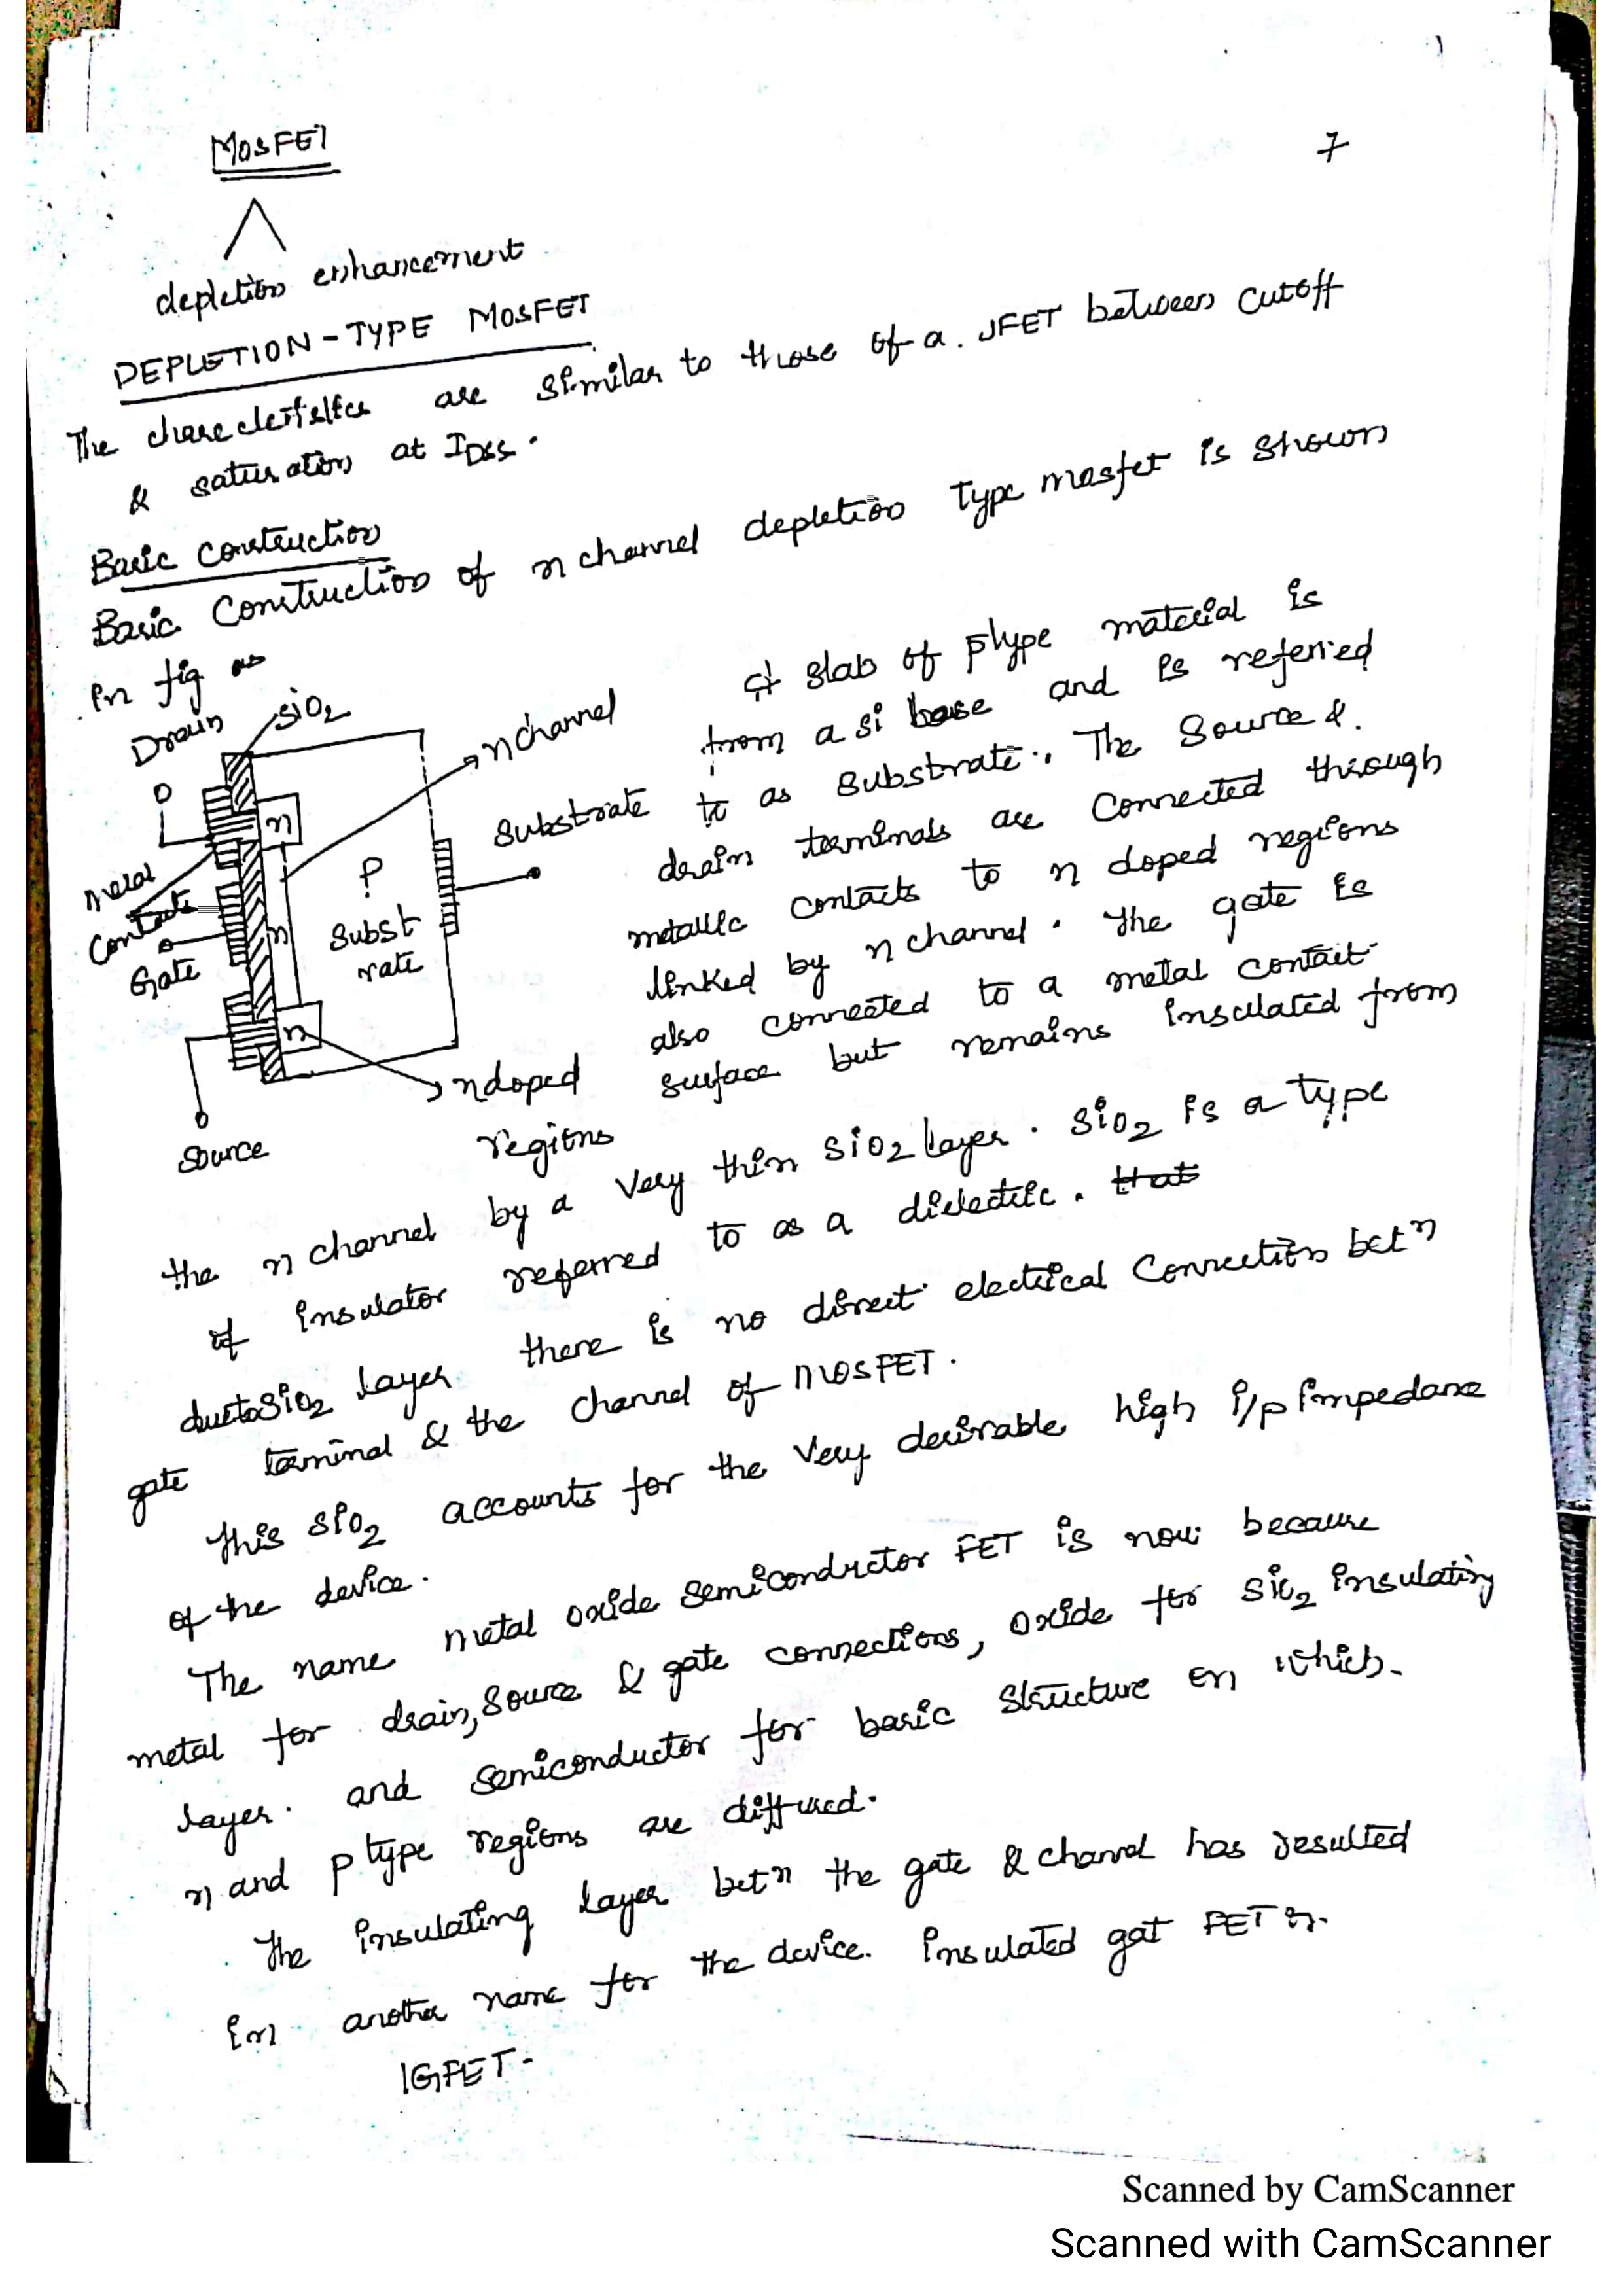 MOSFET
7
depletion enhancement
DEPLETION-TYPE MOSFET
The charecteristics are similar to those of a JFET between cutoff
& saturation at IDSS.
Basic construction
Basic Construction of n channel depletion type mosfet is shown
in fig
Drain
SiO2
n channel
n
Metal
Contacts
Gate
n
P
Subst
rate
Substrate
n
n doped
regions
Source
A slab of P type material is
from a si base and is referred
to as substrate. The Source &
drain terminals are connected through
metallic contacts to n doped regions
linked by n channel. The gate is
also connected to a metal contact
surface but remains insulated from
the n channel by a very thin SiO2 layer. SiO2 is a type
of insulator referred to as a dielectric. that
due to SiO2 layer there is no direct electrical connection betn
gate terminal & the channel of MOSFET.
This SiO2 accounts for the very desirable high i/p impedance
of the device.
The name metal oxide semiconductor FET is now because
metal for drain, source & gate connections, oxide for SiO2 insulating
layer. and semiconductor for basic structure on which
n and p type regions are diffused.
The insulating layer betn the gate & channel has resulted
in another name for the device. Insulated gat FET or
IGFET-
Scanned by CamScanner
Scanned with CamScanner